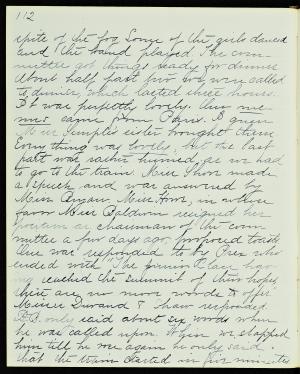 112
spite of the fog some of the girls danced
and the band played. The com-
mittee got things ready for dinner
About half past five we were called
to dinner, which lasted three hours.
It was perfectly lovely. Our me-
nus came from Paris.
Miss Temple's sister brought them
Everything was lovely, but the last
part was rather hurried, as we had
to go to the train. Miss Thom made
a speech and was answered by
Miss, Miss, in whose
favor Miss Baldwin resigned her
position as chairman of the com-
mittee a few days ago, proposed toasts
One was responded to by Prex who
ended with "The Junior Class hav-
ing reached the summit of their hopes
there are no more words to offer
Minnie Durand T. Shaw responded
P.B. only said about six words when
he was called upon. When we clapped
him till he rose again he only said
that the train started in five minutes